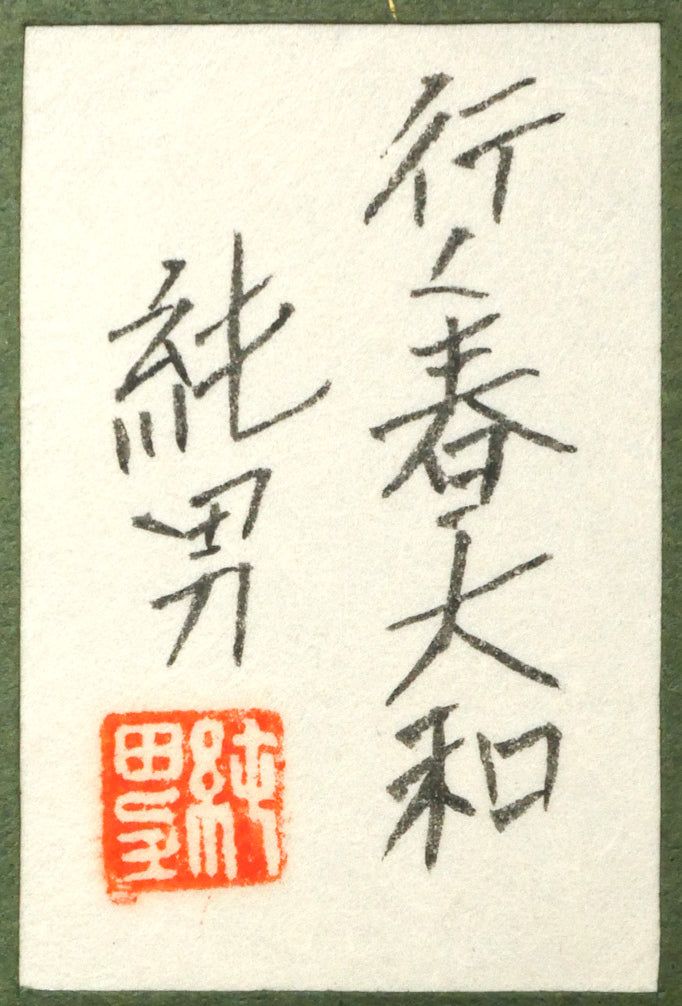 行く春大和
純男
純男